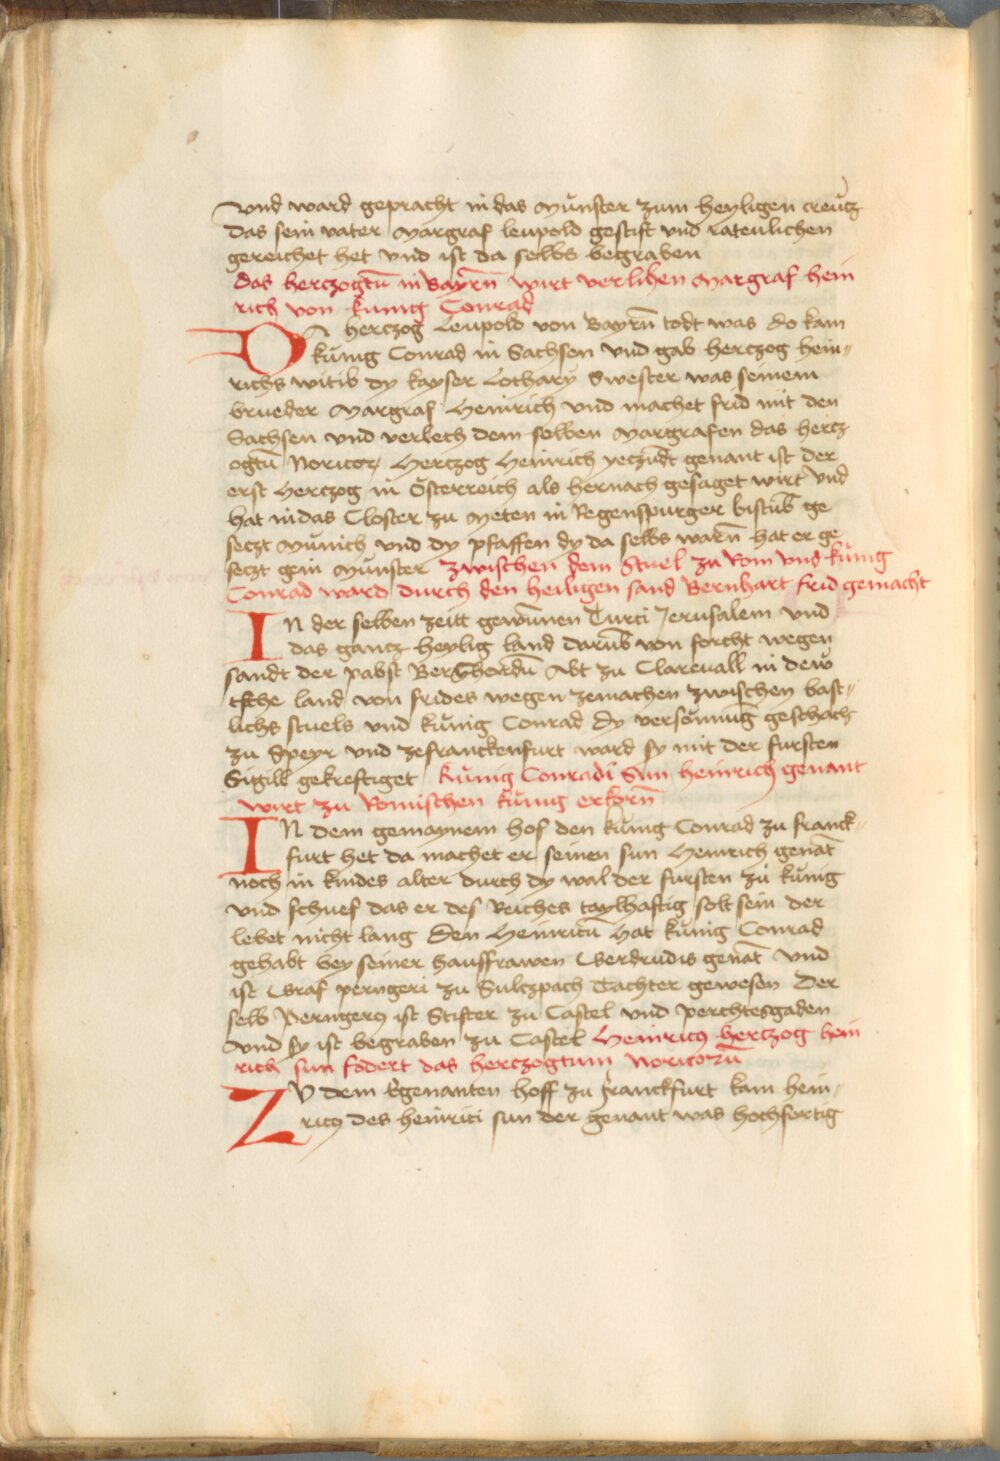 vnd ward gepracht in das Münster zum heyligen creücz
das sein vater Margraf leupold gestift vnd ratenlichen
gereichet het vnd ist da selbs begraben
das herczogtū in Bayrn̄ wirt verlihen Margraf hein
rich von künig Conrad
DO herczog Leupold von Bayrn̄ todt was do kam
künig Conrad in Sachsen vnd gab herczog hein⸗
richs witib dy kayser Lothary Swester was seinem
brueder Margraf Heinrich vnd machet frid mit den
Sachsen vnd verlech dem selben Margrafen das hercz
ogtū Noricoꝝ Herczog Heinrich yeczūdt genant ist der
erst Herczog in Österreich als hernach gesaget wirt vnd
hat in das Closter zu Meten in Regenspurger bistūb ge
seczt Münich vnd dy pfaffen dy da selbs warn̄ hat er ge
seczt gein Münster zwischen dem Stuel zu Rom vnd künig
Conrad ward durch den heiligen sand Bernhart frid gemacht
IN der selben zeitt gewunnen Turci Jerusalem vnd
das gancz heylig land darūb von forcht wegen
sandt der pabst Bernhardū Abt zu Clareuall in dew
tsche land von frides wegen zemachen zwischen bäst⸗
lichs stuels vnd künig Conrad dy versönnūg geschach
zu Speyr vnd zefranckenfurt ward sy mit der fursten
Sigill gekreftiget künig Conradi Sun heinrich genant
wirt zu Romischen künig erkorn̄
IN dem gemaynem hof den künig Conrad zu franck⸗
furt het da machet er seinen sun Heinrich genāt
noch in kindes alter durch dy wal der fursten zu künig
vnd schuef das er des Reiches taylhaftig solt sein der
lebet nicht lang den Heinricū hat künig Conrad
gehabt bey seiner hausfrawen Gerdrudis genāt vnd
ist Graf perngeri zu Sulczpach Tachter gewesen der
selb Perngerꝰ ist Stifter zu Castel vnd perchtesgaden
vnd sy ist begraben zu Castel Heinricꝰ herczog hein
rich sun fodert das herczogtum Noricorū
ZV dem Egenanten hoff zu franckfurt kam hein⸗
ricꝰ des heinrici sun der genant was hochfertig